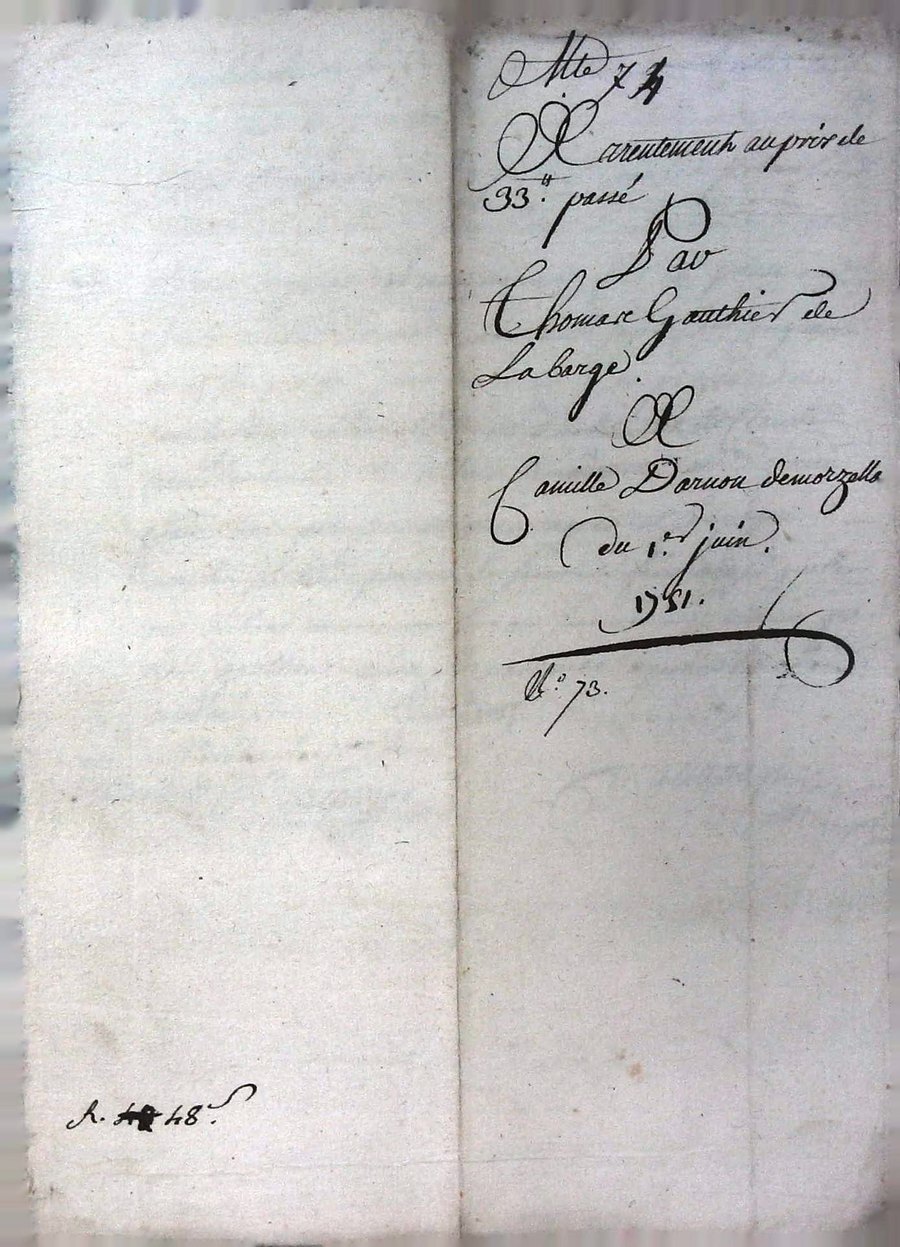 Mte 74
Aarentement au prix de
33.ᵗᵗ passé
Par
Thomase Gauthier de
La barge.
A
Camille Darnon demorzelle
du 1.er juin.
1751.
N.o 73.
R. 48s